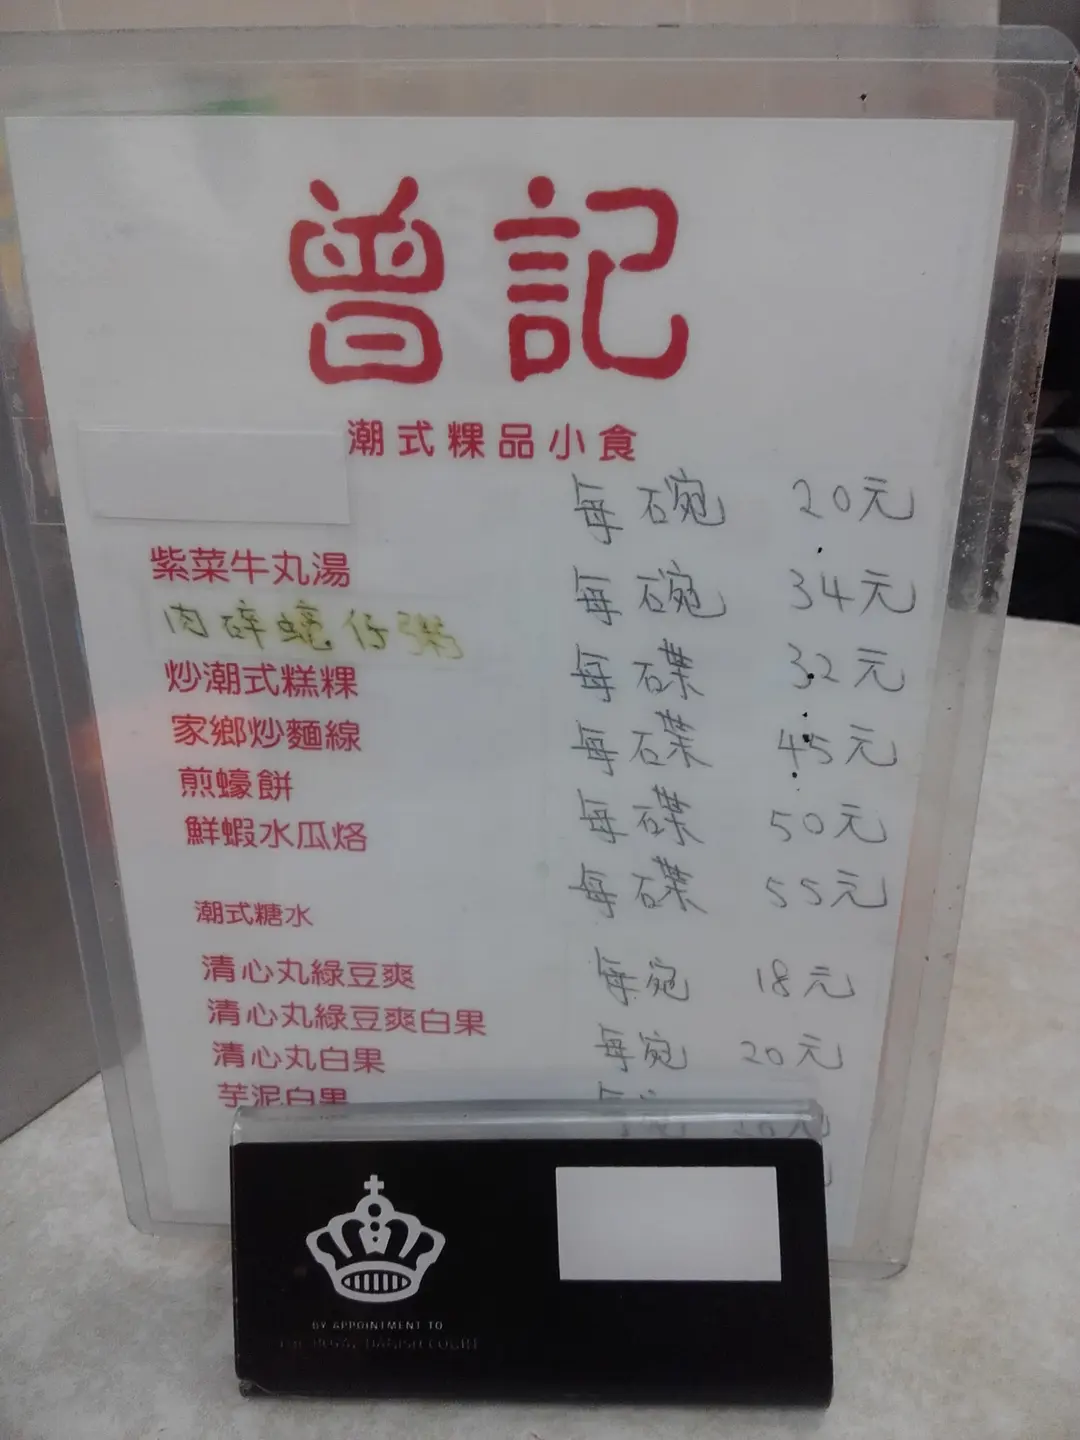 曾記
潮式粿品小食
每碗 20元
紫菜牛丸湯 每碗 34元
肉碎蠔仔粥 每碟 32元
炒潮式糕粿 每碟 45元
家鄉炒麵線 每碟 50元
煎蠔餅 每碟 55元
鮮蝦水瓜烙
潮式糖水
清心丸綠豆爽 每宛 18元
清心丸綠豆爽白果 每宛 20元
清心丸白果
芋泥白果
BY APPOINTMENT TO
THE ROYAL DANISH COURT